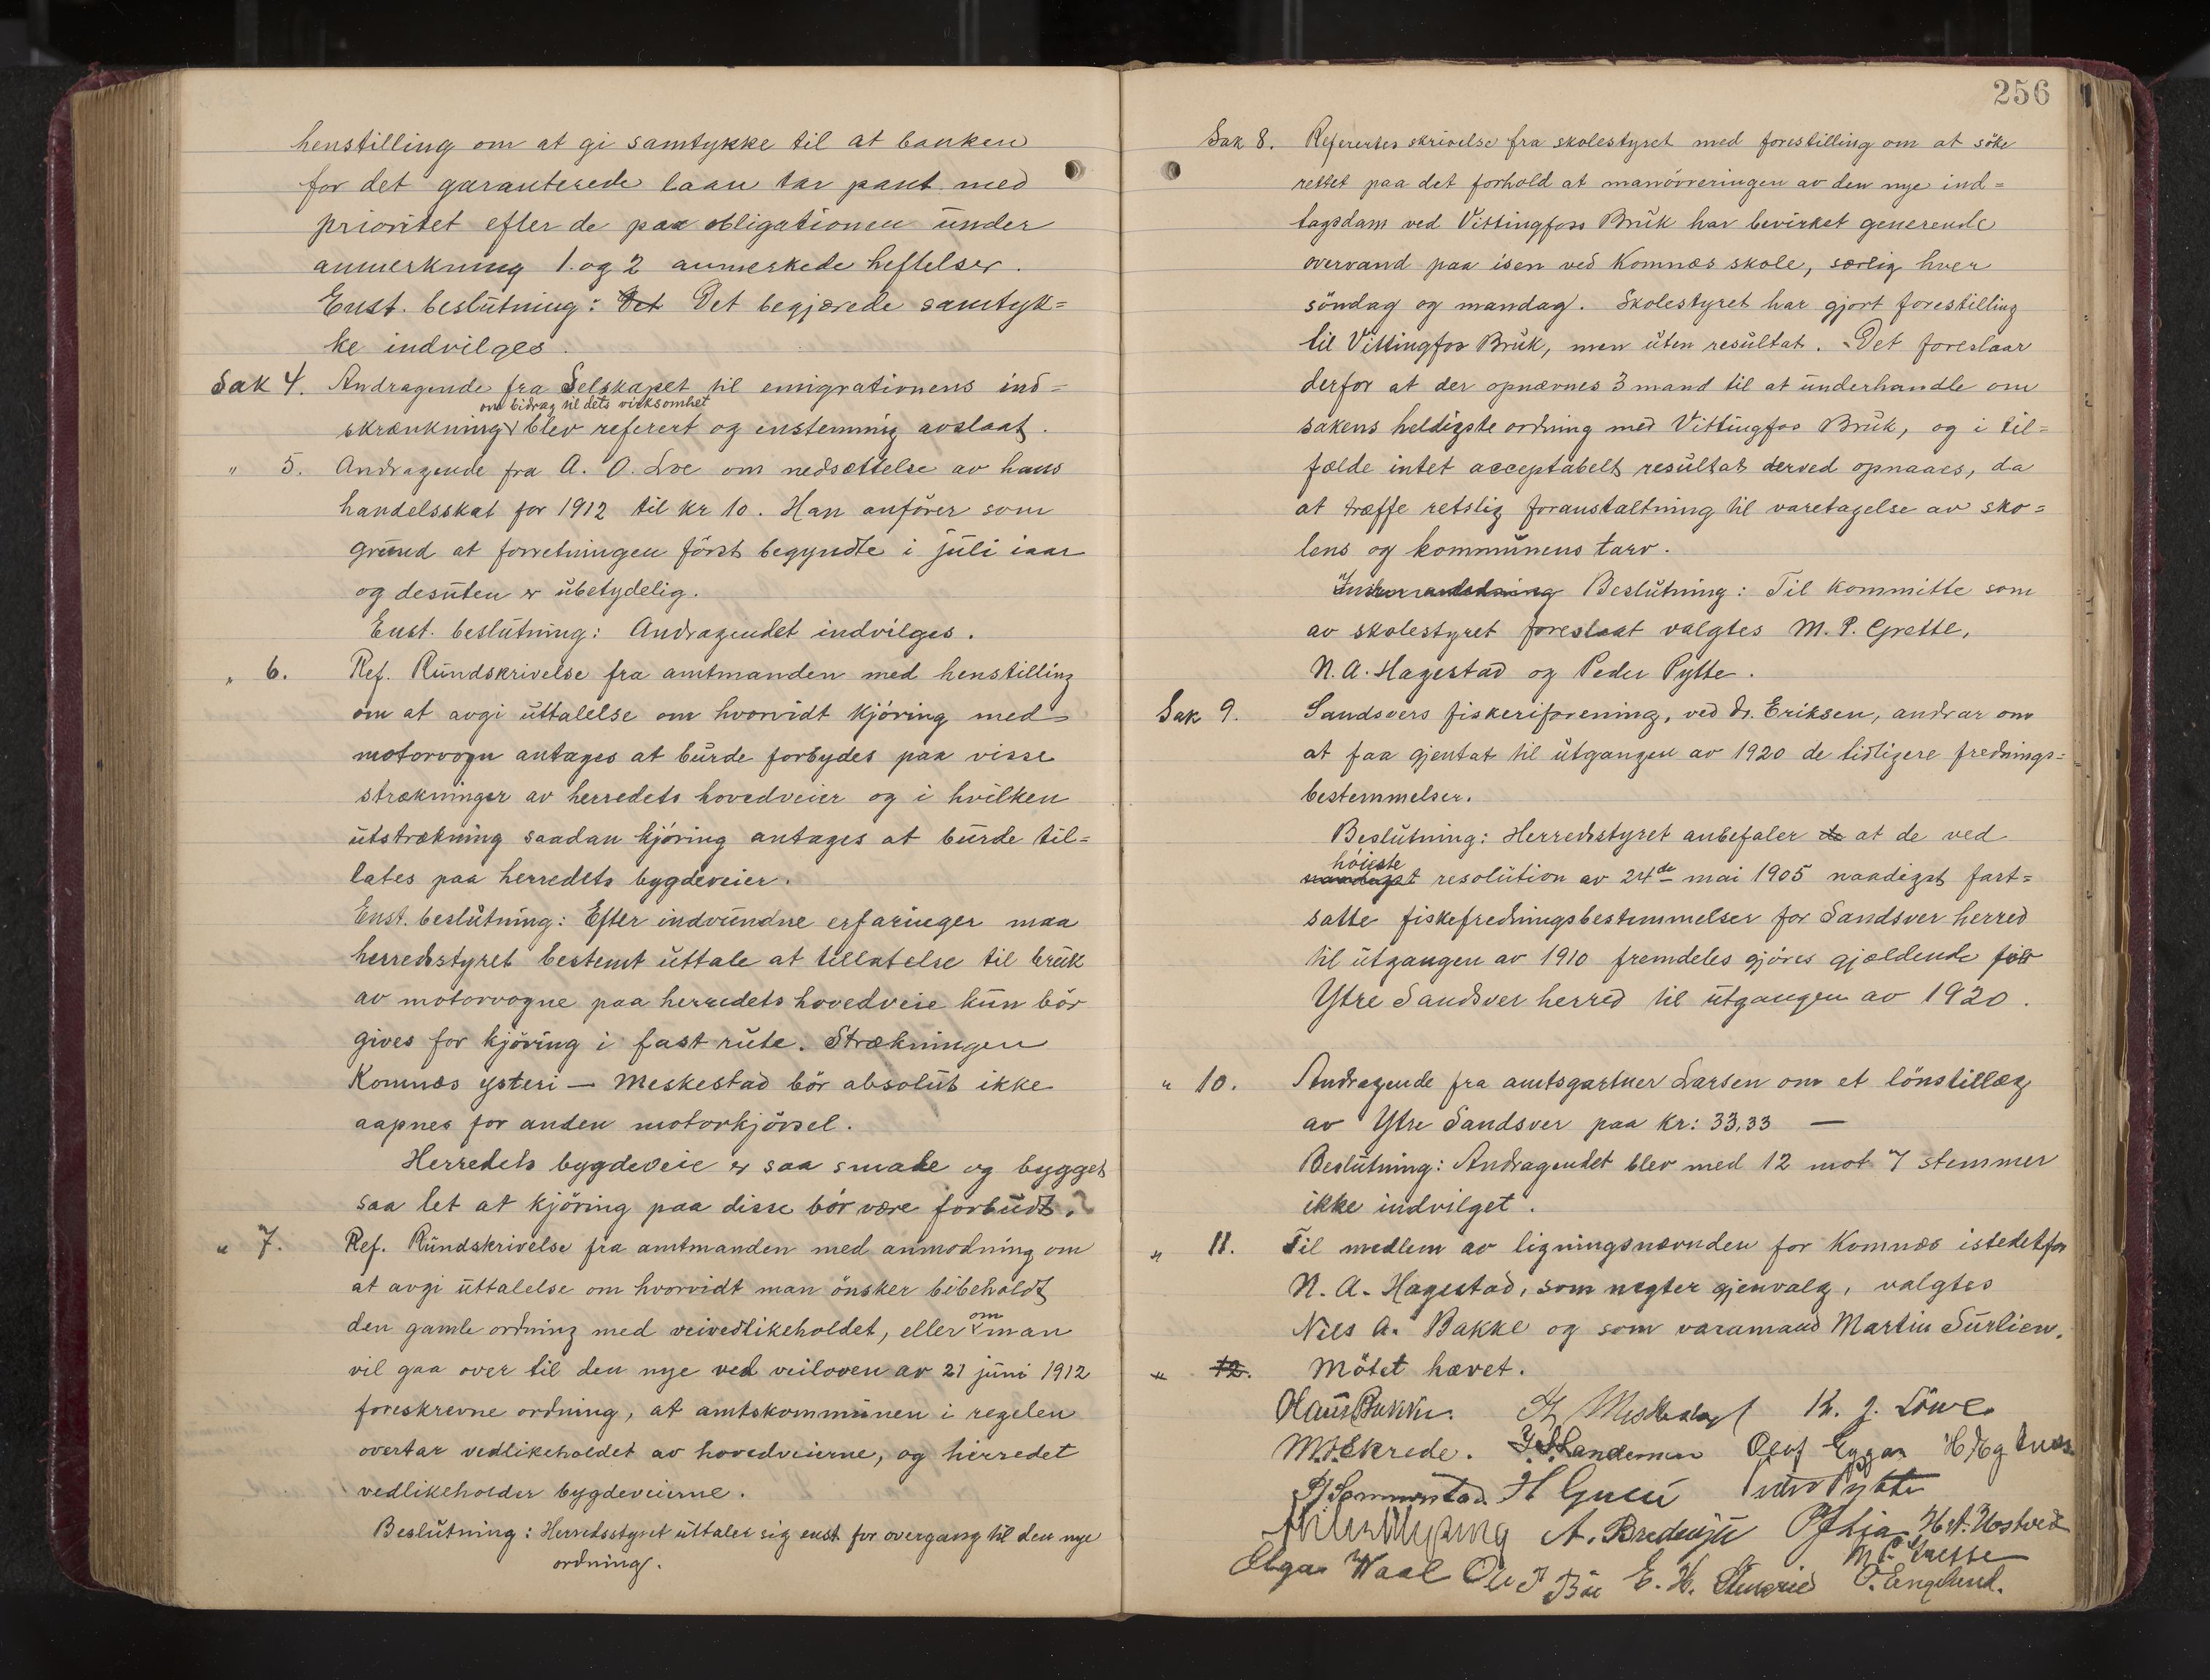 henstilling om at gi samtykke til at banken
for det garanterede laan tar pant med
prioritet efter de paa obligationen under
anmerkning 1. og 2 anmerkede heftelser.
Enst. beslutning: Det Det begjærede samtyk=
ke indvilges.
Sak 4. Andragende fra Selskapet til emigrationens ind=
om bidrag til dets virksomhet
skrænkning blev referert og enstemmig avslaat.
" 5. Andragende fra A. O. Loe om nedsættelse av hans
handelsskat for 1912 til kr 10. Han anfører som
grund at forretningen först begyndte i juli iaar
og desuten er ubetydelig.
Enst. beslutning: Andragendet indvilges.
" 6. Ref. Rundskrivelse fra amtmanden med henstilling
om at avgi uttalelse om hvorvidt kjöring med
motorvogn antages at burde forbydes paa visse
strækninger av herredets hovedveier og i hvilken
utstrækning saadan kjöring antages at burde til=
lates paa herredets bygdeveier.
Enst. beslutning: Efter indvundne erfaringer maa
herredsstyret bestemt uttale at tillatelse til bruk
av motorvogne paa herredets hovedveie kun bör
gives for kjöring i fast rute. Strækningen
Komnæs ysteri — Meskestad bör absolut ikke
aapnes for anden motorkjörsel.
Herredets bygdeveie er saa smale og bygget
saa let at kjöring paa disse bör være forbudt.
" 7. Ref. Rundskrivelse fra amtmanden med anmodning om
at avgi uttalelse om hvorvidt man önsker bibeholdt
den gamle ordning med veivedlikeholdet, eller om man
vil gaa over til den nye ved veiloven av 21 juni 1912
foreskrevne ordning, at amtskommunen i regelen
overtar vedlikeholdet av hovedveierne, og herredet
vedlikeholder bygdeveierne.
Beslutning: Herredsstyret uttaler sig enst. for overgang til den nye
ordning.
256
Sak 8. Refererte skrivelse fra skolestyret med forestilling om at söke
rettet paa det forhold at manövreringen av den nye ind=
tagsdam ved Vittingfoss Bruk har bevirket generende
overvand paa isen ved Komnæs skole, særlig hver
söndag og mandag. Skolestyret har gjort forestilling
til Vittingfos Bruk, men uten resultat. Det foreslaar
derfor at der opnævnes 3 mand til at underhandle om
sakens heldigste ordning med Vittingfos Bruk, og i til=
fælde intet acceptabelt resultat derved opnaaes, da
at træffe retslig foranstaltning til varetagelse av sko=
lens og kommunens tarv.
Beslutning: Til kommitte som
av skolestyret foreslaat valgtes M. P. Grette,
N. A. Hagestad og Peder Pytte.
Sak 9. Sandsvers fiskeriforening, ved dr. Eriksen, andrar om
at faa gjentat til utgangen av 1920 de tidligere frednings=
bestemmelser.
Beslutning: Herredsstyret anbefaler de at de ved
höieste
naadigst resolution av 24de mai 1905 naadigst fast=
satte fiskefredningsbestemmelser for Sandsver herred
til utgangen av 1910 fremdeles gjöres gjældende for
Ytre Sandsver herred til utgangen av 1920.
" 10. Andragende fra amtsgartner Larsen om et lönstillæg
av Ytre Sandsver paa kr: 33,33 —
Beslutning: Andragendet blev med 12 mot 7 stemmer
ikke indvilget.
" 11. Til medlem av ligningsnævnden for Komnæs istedetfor
N. A. Hagestad, som nægter gjenvalg, valgtes
Nils A. Bakke og som varamand Martin Surlien.
" 12. Mötet hævet.
Hans Bakke. K. J. Löwe
M. Skrede. Olof Eggar
H Gunu Peder Pytte
A. Bredesju H. A. Hostved
M. P. Grette
Olga Waal Ole P Bae E. H. O. Englund.